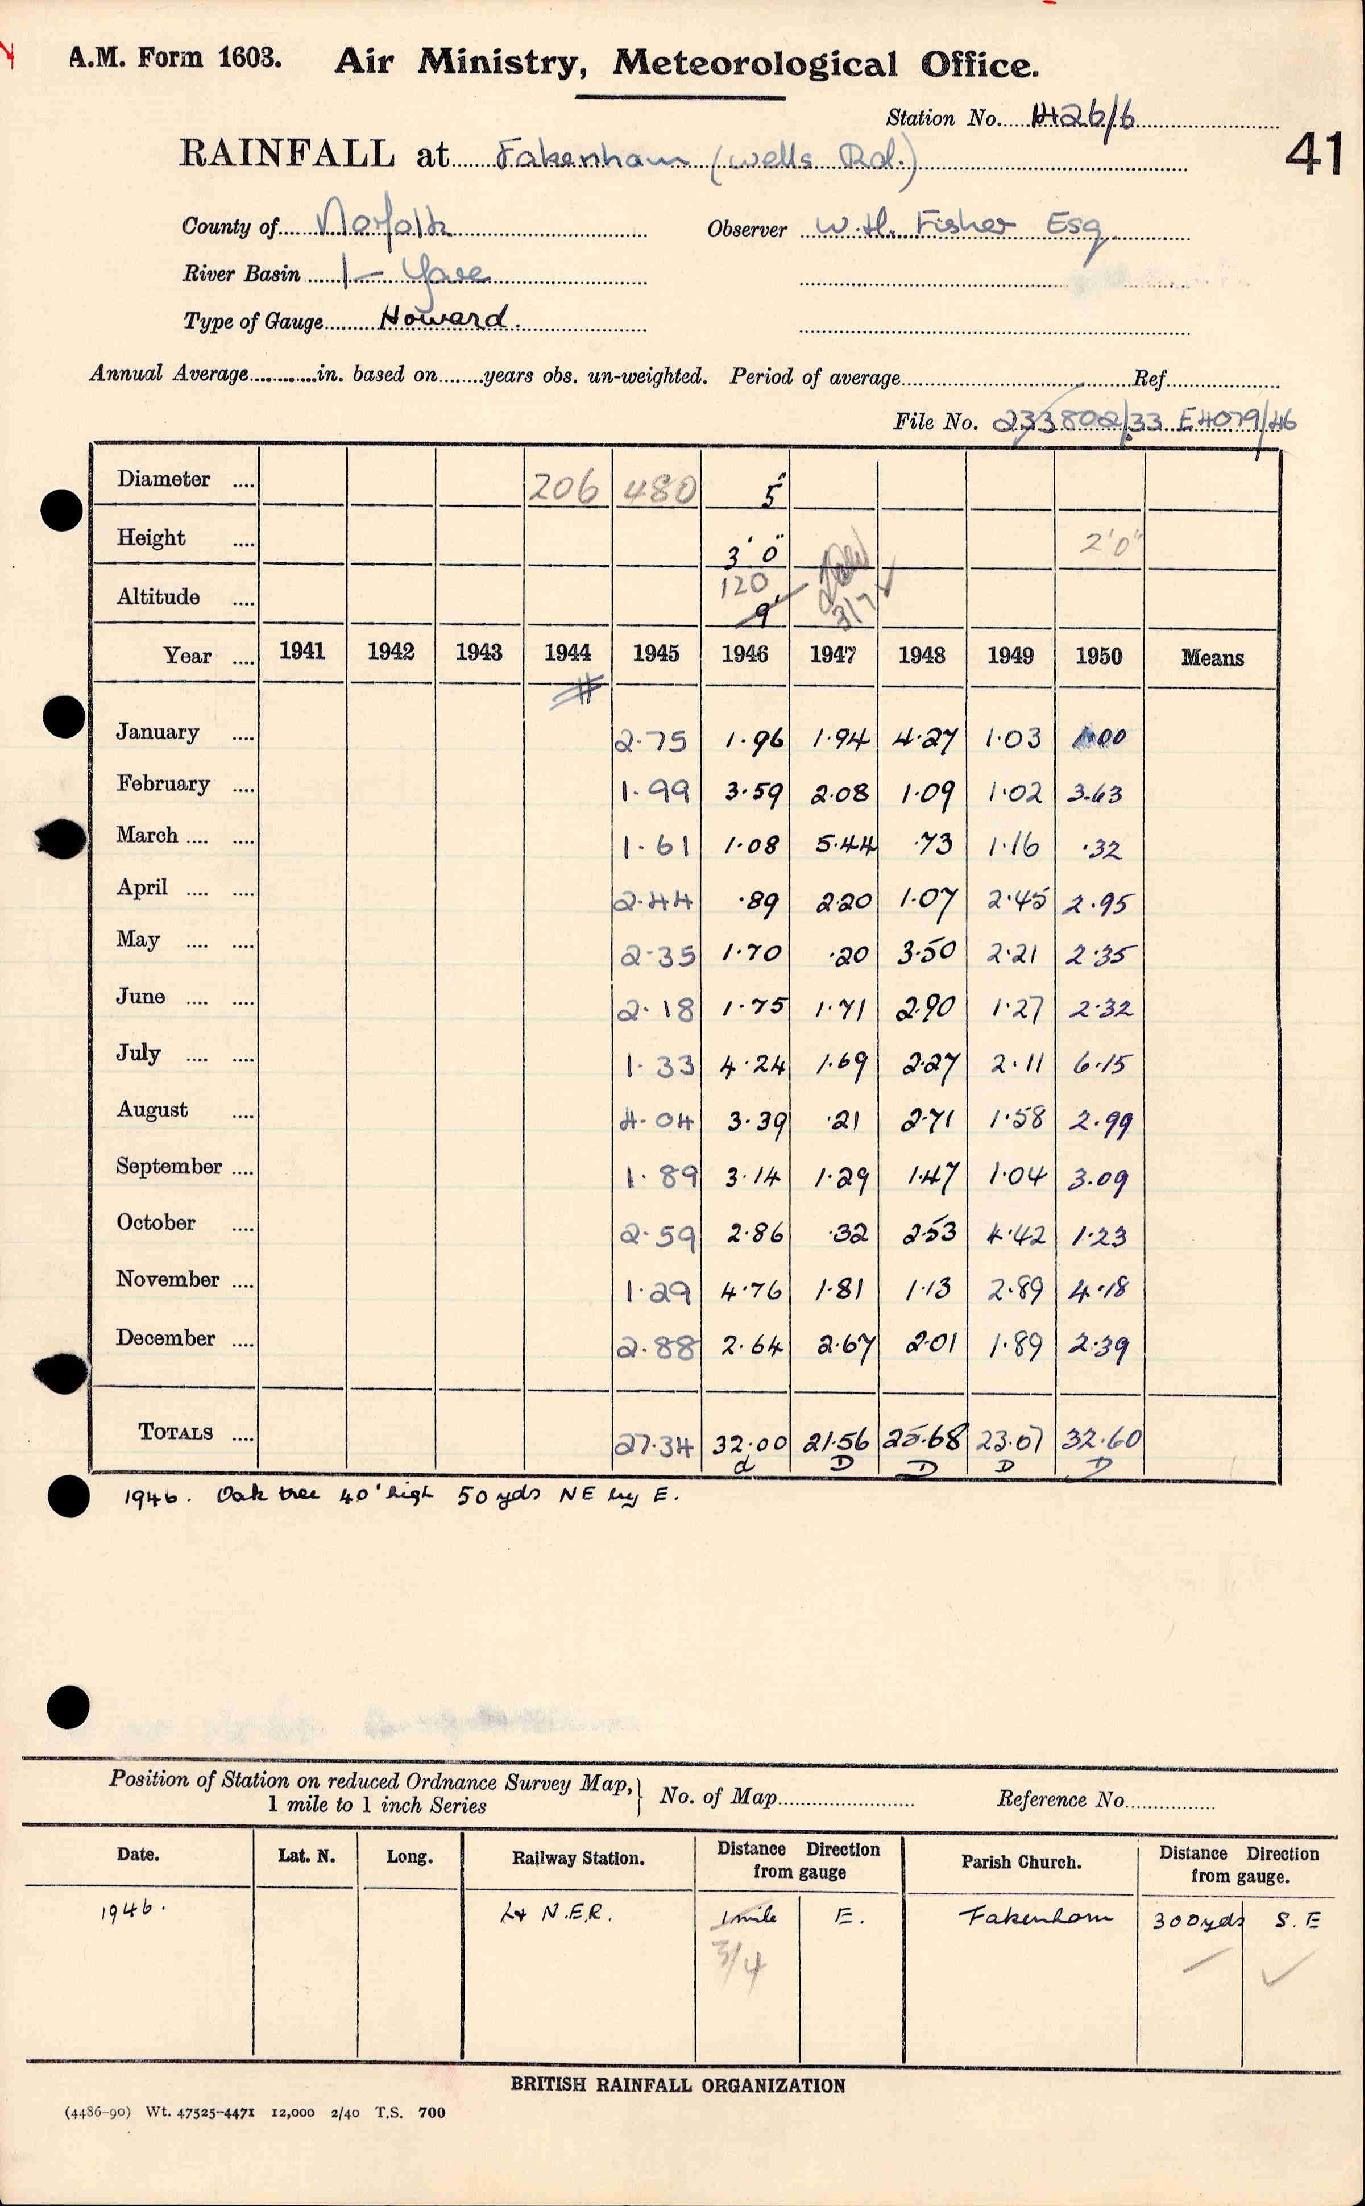 A.M. Form 1603. Air Ministry, Meteorological Office.
Station No. 426/6
41
RAINFALL at Fakenham (Wells Rd.)
County of Norfolk Observer W.H. Fisher Esq
River Basin Yare
Type of Gauge Howard.
Annual Average in. based on years obs. un-weighted. Period of average Ref
File No. 233802/33 E4079/46
Diameter .... 206 480 5"
Height .... 3' 0" 2'0"
Altitude .... 120 9' 3/7
Year .... 1941 1942 1943 1944 1945 1946 1947 1948 1949 1950 Means
January .... 2.75 1.96 1.94 4.27 1.03 1.00
February .... 1.99 3.59 2.08 1.09 1.02 3.63
March .... .... 1.61 1.08 5.44 .73 1.16 .32
April .... .... 2.44 .89 2.20 1.07 2.45 2.95
May .... .... 2.35 1.70 .20 3.50 2.21 2.35
June .... .... 2.18 1.75 1.71 2.90 1.27 2.32
July .... .... 1.33 4.24 1.69 2.27 2.11 6.15
August .... 4.04 3.39 .21 2.71 1.58 2.99
September .... 1.89 3.14 1.29 1.47 1.04 3.09
October .... 2.59 2.86 .32 2.53 4.42 1.23
November .... 1.29 4.76 1.81 1.13 2.89 4.18
December .... 2.88 2.64 2.67 2.01 1.89 2.39
TOTALS .... 27.34 32.00 21.56 25.68 23.07 32.60
d D D D D
1946. Oak tree 40' high 50 yds NE by E.
Position of Station on reduced Ordnance Survey Map,
1 mile to 1 inch Series
No. of Map Reference No.
Date. Lat. N. Long. Railway Station. Distance Direction from gauge Parish Church. Distance Direction from gauge.
1946. L & N.E.R. 1 mile E. Fakenham 300 yds S.E
3/4
BRITISH RAINFALL ORGANIZATION
(4486-90) Wt. 47525-4471 12,000 2/40 T.S. 700